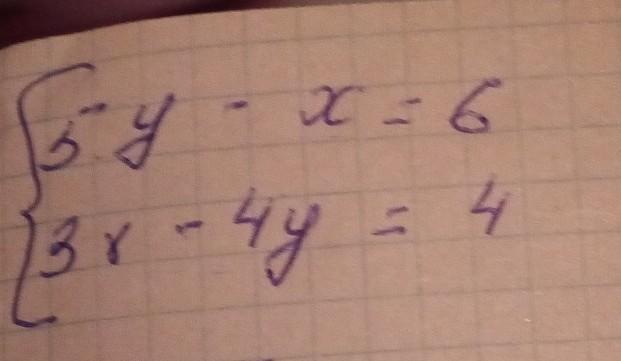 5y - x = 6
3x - 4y = 4